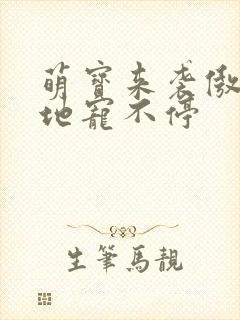 萌寶来袭傲
地寵不停
生筆馬靚